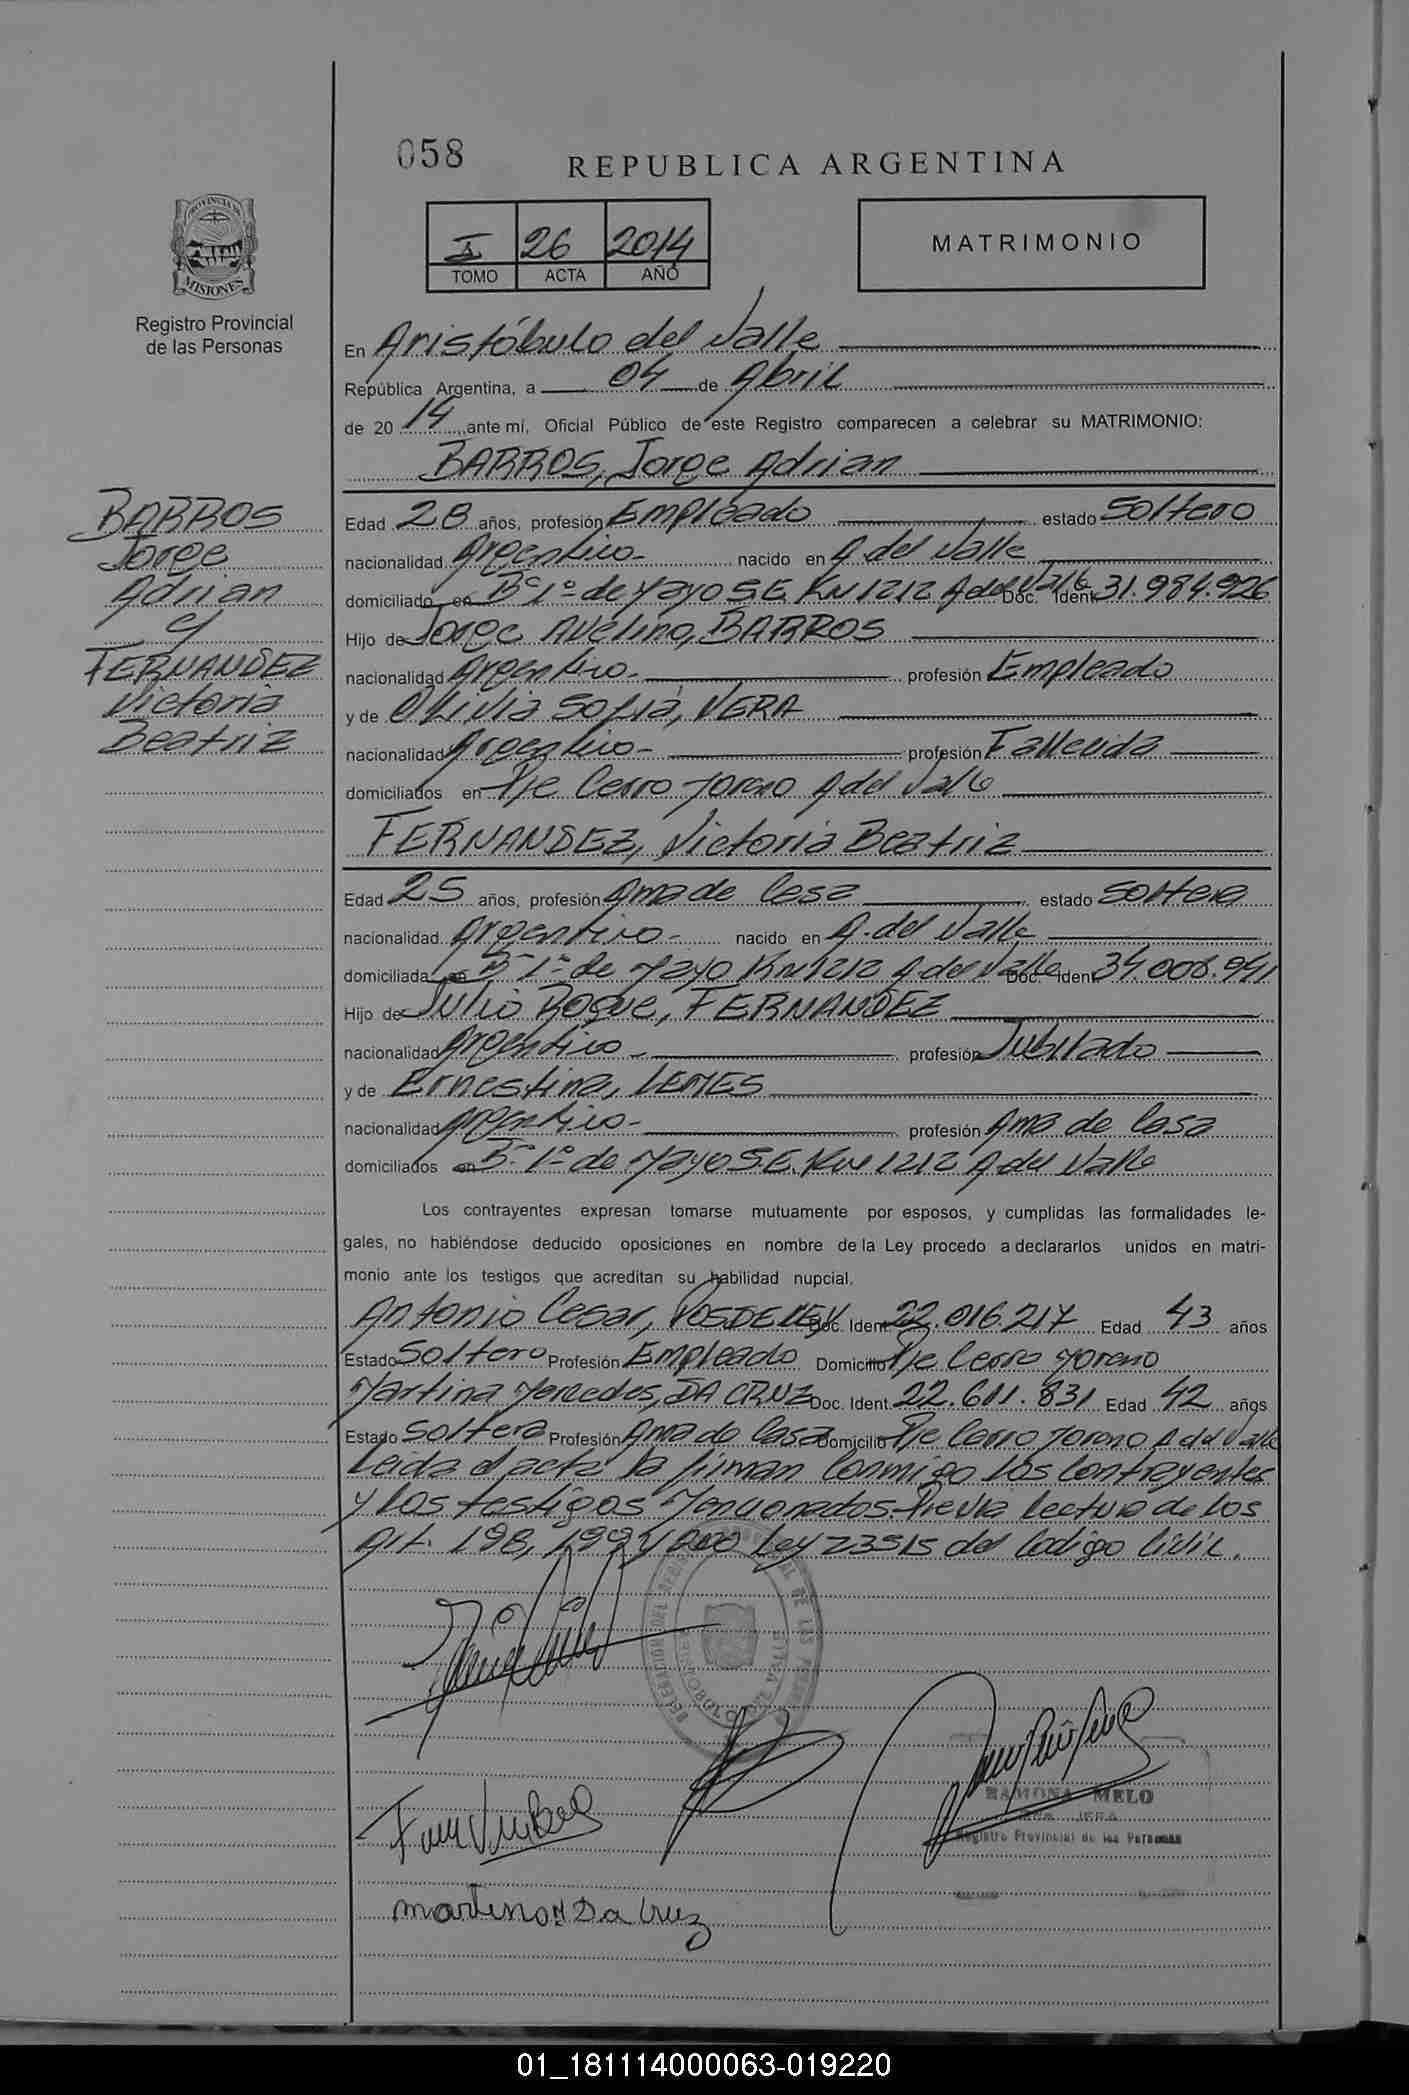 058
REPUBLICA ARGENTINA
I 26 2014
TOMO ACTA AÑO
MATRIMONIO
PROVINCIA DE
MISIONES
Registro Provincial
de las Personas
En Aristóbulo del Valle
República Argentina, a 04 de Abril
de 20 14 ante mí, Oficial Público de este Registro comparecen a celebrar su MATRIMONIO:
BARROS, Jorge Adrian
BARROS
Jorge
Adrian
y
FERNANDEZ
Victoria
Beatriz
Edad 28 años, profesión Empleado estado Soltero
nacionalidad Argentino- nacido en A. del Valle
domiciliado en B° 1° de Mayo S.E. Km 1212 A del Valle Doc. Ident. 31.984.926
Hijo de Jorge Avelino, BARROS
nacionalidad Argentino- profesión Empleado
y de Olivia Sofia, VERA
nacionalidad Argentino- profesión Fallecida
domiciliados en Pje Cerro Moreno A del Valle
FERNANDEZ, Victoria Beatriz
Edad 25 años, profesión Ama de Casa estado Soltera
nacionalidad Argentino- nacido en A. del Valle
domiciliada en B° 1° de Mayo Km 1212 A. del Valle Doc. Ident. 34.008.941
Hijo de Julio Roque, FERNANDEZ
nacionalidad Argentino- profesión Jubilado
y de Ernestina, LEMES
nacionalidad Argentino- profesión Ama de Casa
domiciliados en B° 1° de Mayo S.E. Km 1212 A del Valle
Los contrayentes expresan tomarse mutuamente por esposos, y cumplidas las formalidades le-
gales, no habiéndose deducido oposiciones en nombre de la Ley procedo a declararlos unidos en matri-
monio ante los testigos que acreditan su habilidad nupcial.
Antonio Cesar, Doc. Ident. 22.016.217 Edad 43 años
Estado Soltero Profesión Empleado Domicilio Pje Cerro Moreno
Martina Mercedes, DA CRUZ Doc. Ident. 22.611.831 Edad 42 años
Estado Soltera Profesión Ama de Casa Domicilio Pje Cerro Moreno A del Valle
Leida el acta la firman Conmigo los Contrayentes
y los testigos Mencionados. Previa lectura de los
Art. 198, 199 y 200 Ley 23515 del Codigo Civil.
martina M Da Cruz
RAMONA MELO
Registro Provincial de las Personas
01_181114000063-019220